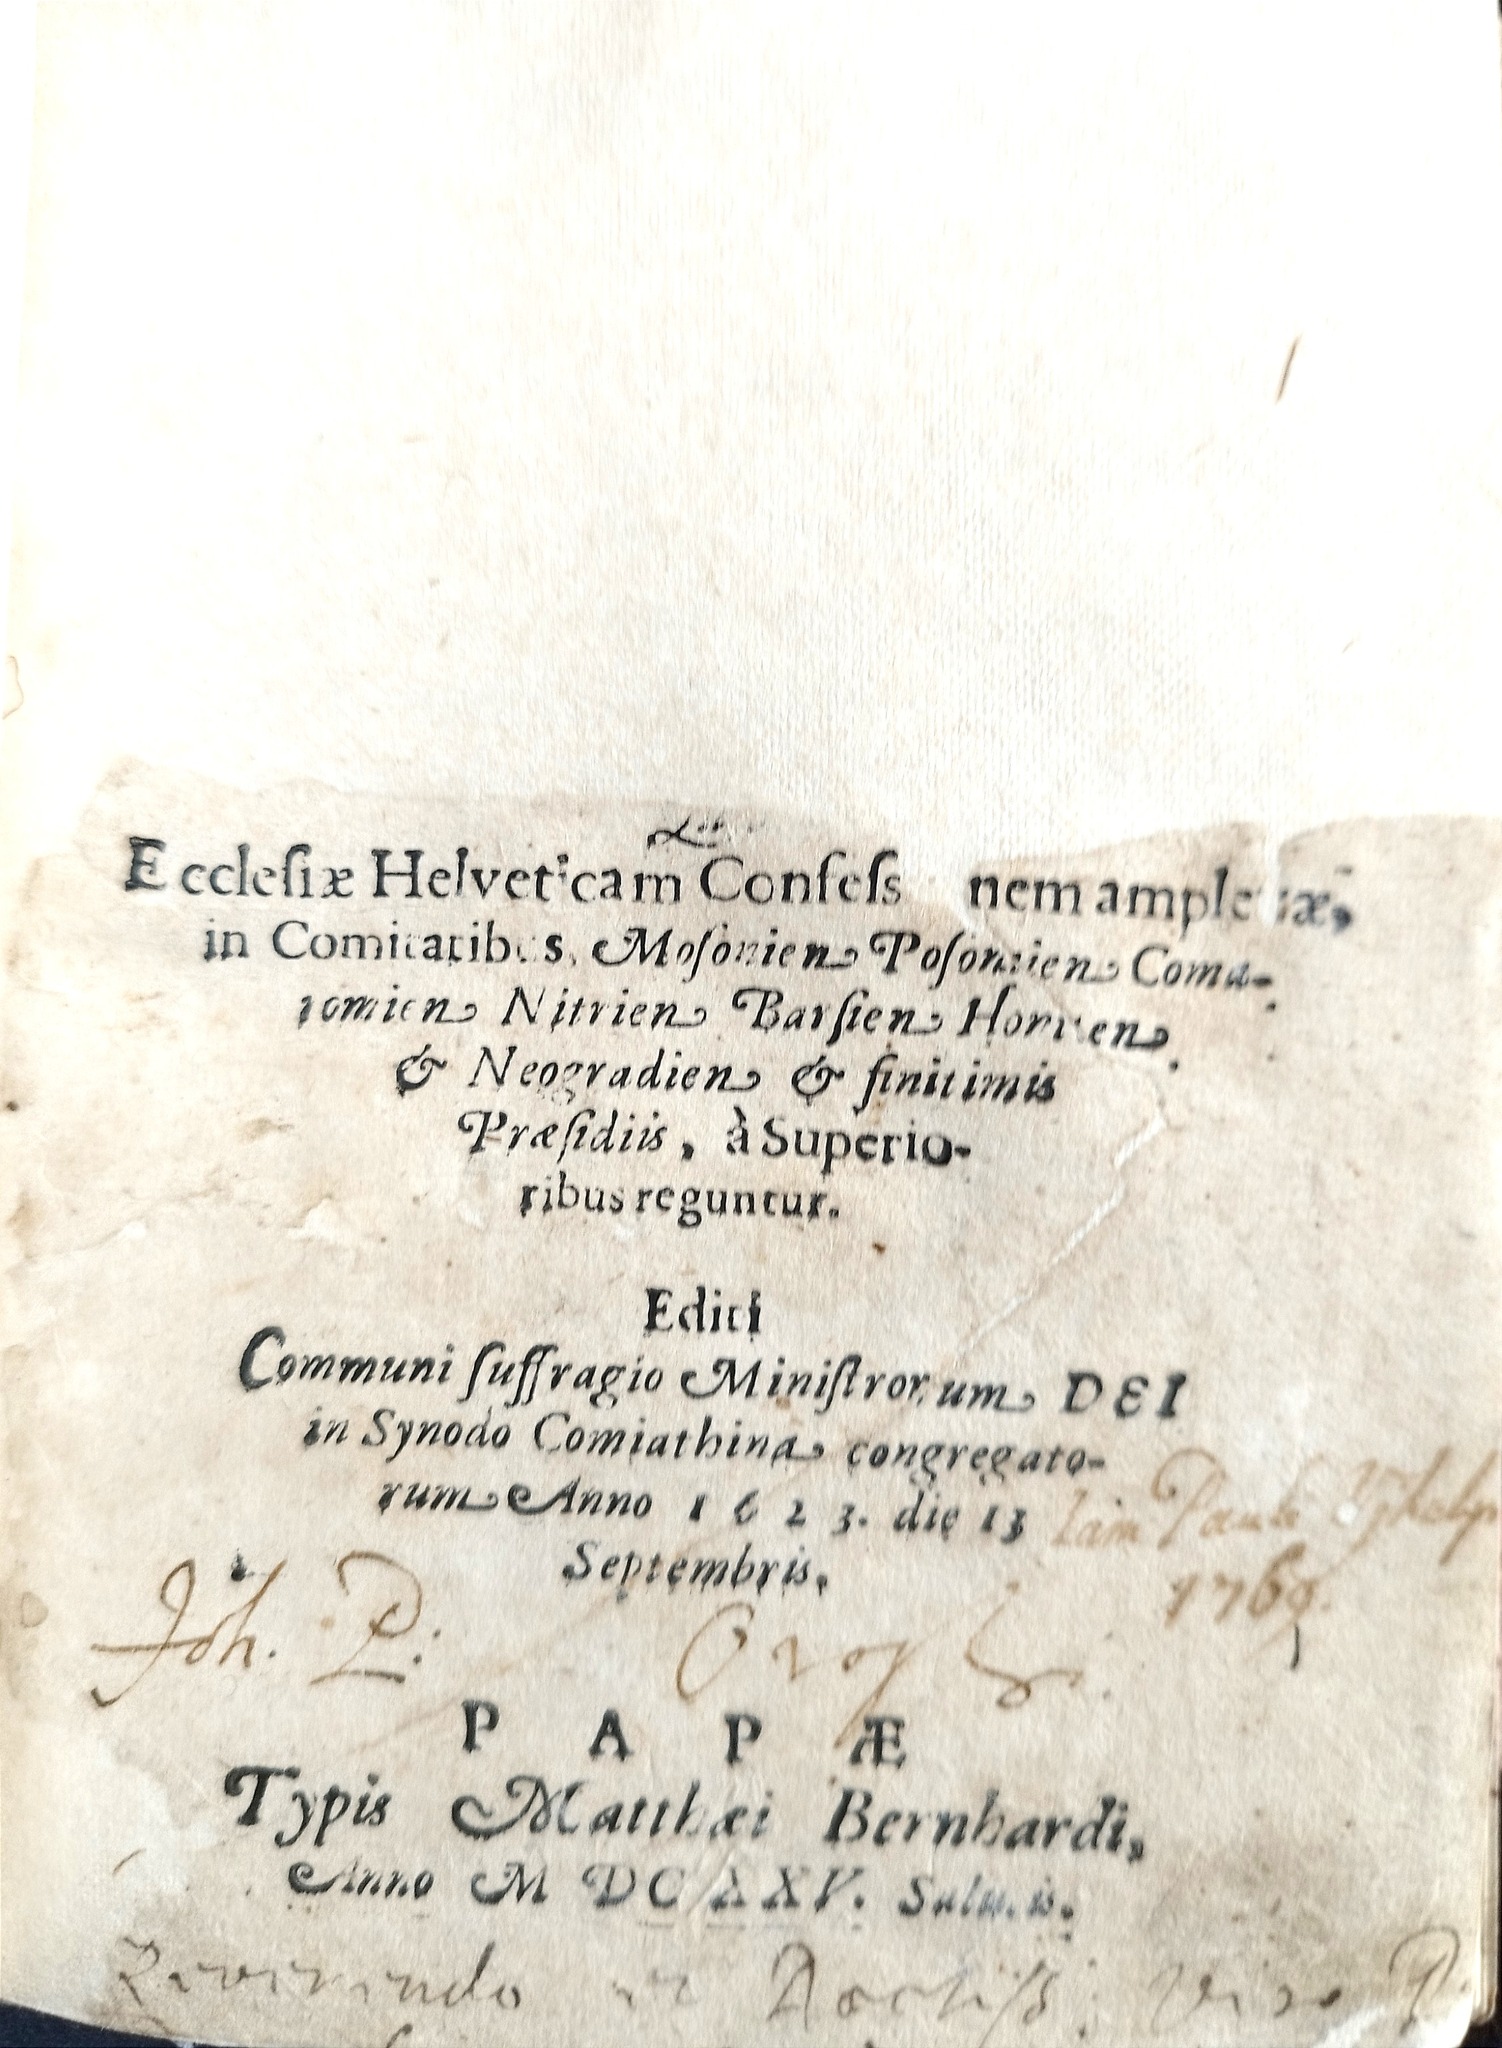 Eccleſiæ Helveticam Confeſs nem ample æ,
in Comitatibus, Moſonien Poſonien Coma-
romien Nitrien Barſien Honten
& Neogradien & finitimis
Præſidiis, à Superio-
ribus reguntur.
Editi
Communi ſuffragio Miniſtrorum DEI
in Synodo Comiathina congregato-
rum Anno 1623. die 13
Septembris.
Iam Pauli
1769.
Joh. P:
PAPÆ
Typis Matthæi Bernhardi,
Anno M DC XXV. Salutis.
Reverendo ac Doctiſs: Viro P.